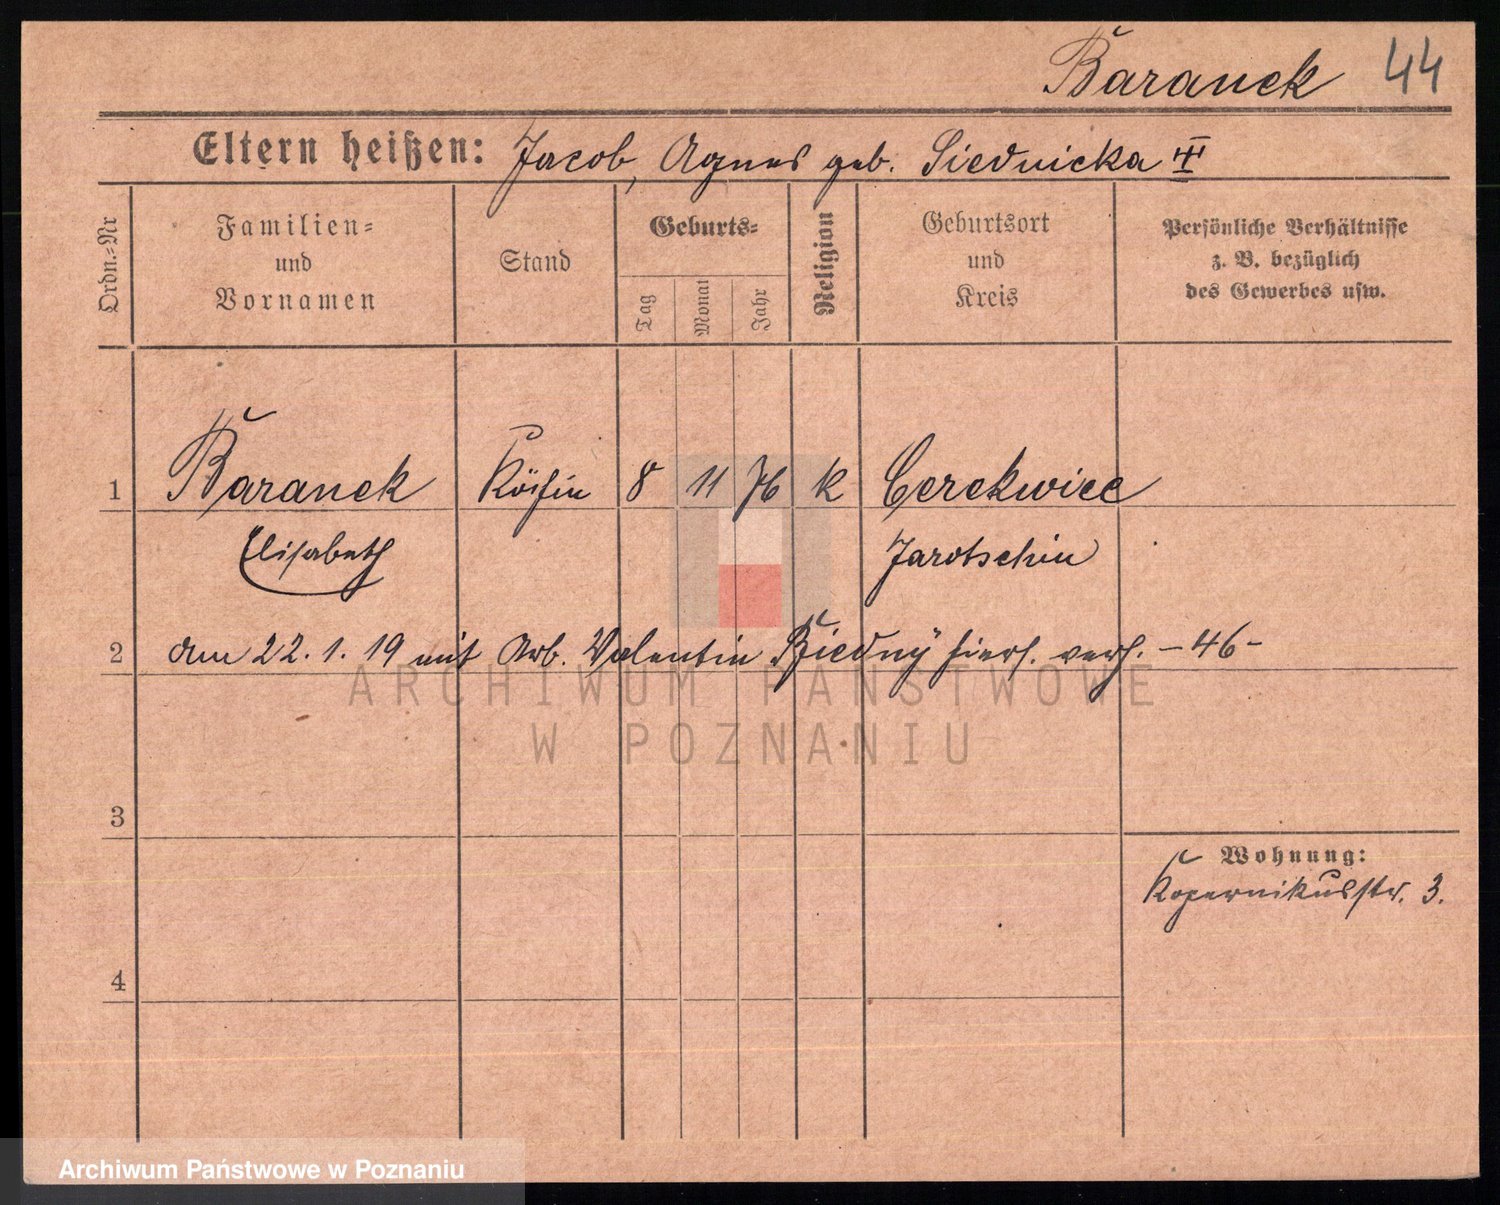 Baranek 44
Eltern heißen: Jacob, Agnes geb. Siednicka
Ordn.-Nr
Familien-
und
Vornamen
Stand
Geburts-
Tag
Monat
Jahr
Religion
Geburtsort
und
Kreis
Persönliche Verhältnisse
z. B. bezüglich
des Gewerbes usw.
1 Baranek Köchin 8 11 76 k Cerekwice
Elisabeth Jarotschin
2 am 22.1.19 mit Arb. Valentin Biedny hiers. verh. -46-
3
Wohnung:
Kopernikusstr. 3.
4
ARCHIWUM PAŃSTWOWE
W POZNANIU
Archiwum Państwowe w Poznaniu